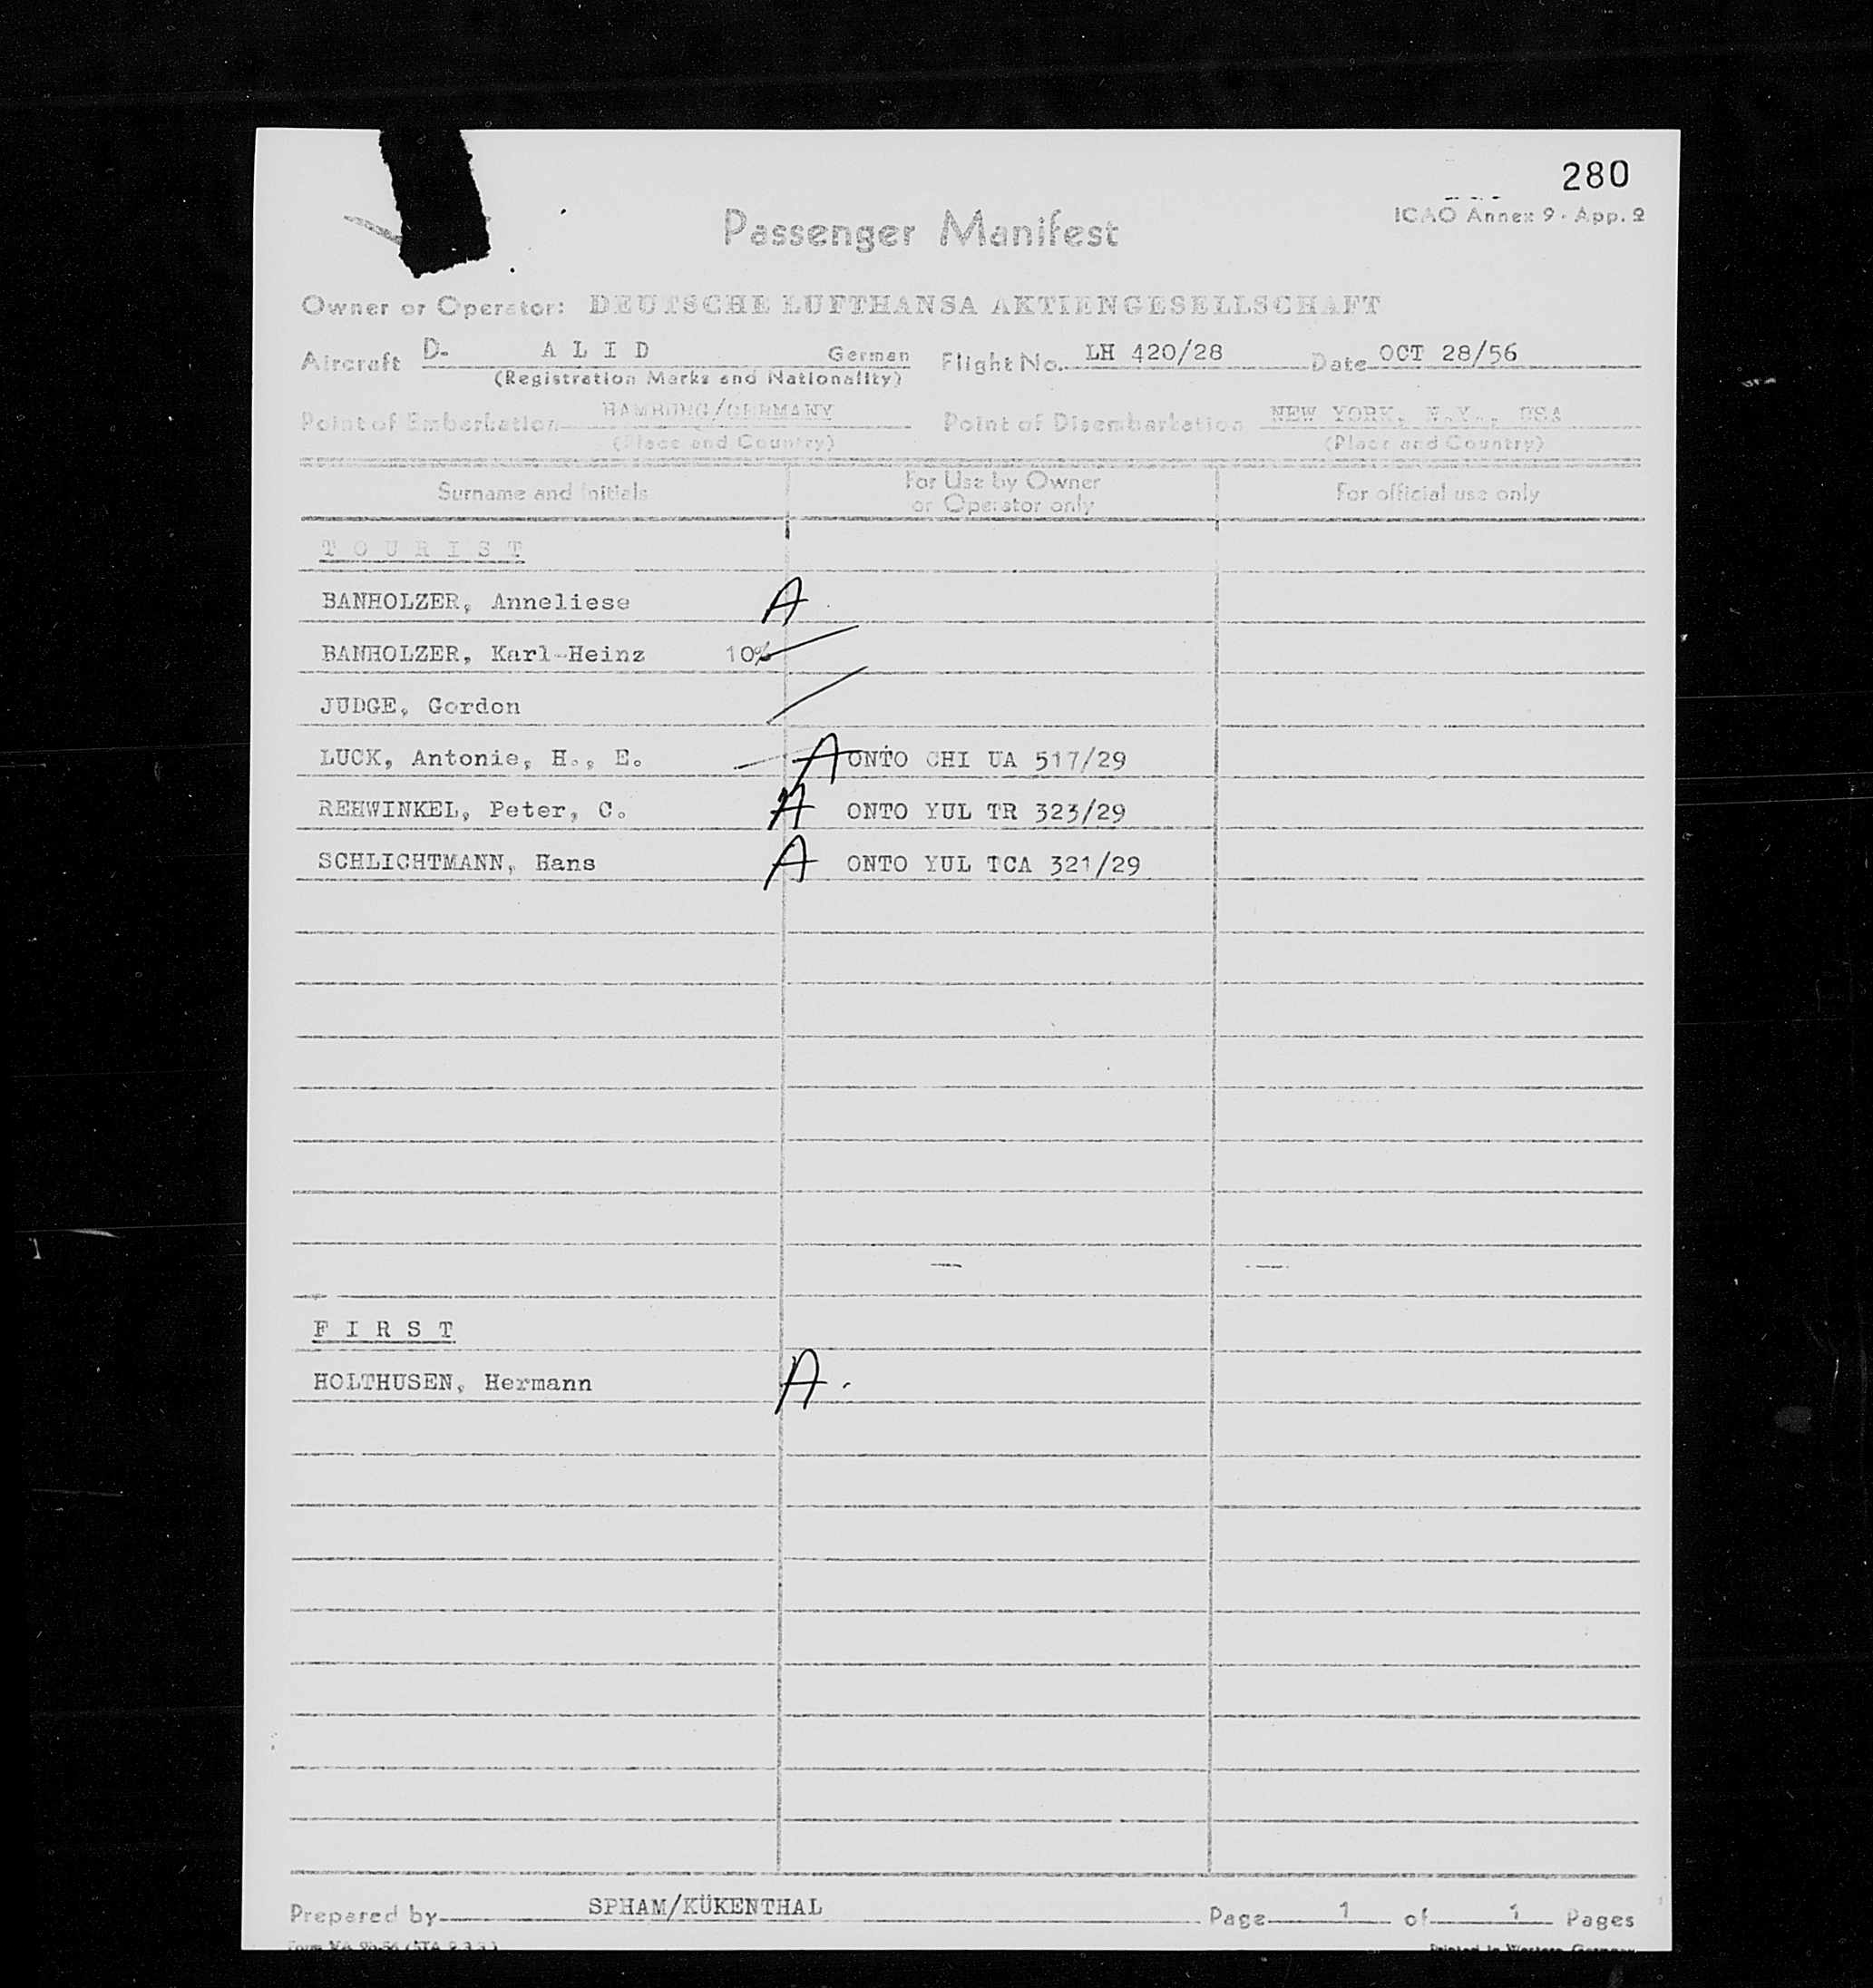 280
ICAO Annex 9 · App. 2
Passenger Manifest
Owner or Operator: DEUTSCHE LUFTHANSA AKTIENGESELLSCHAFT
Aircraft D- A L I D German Flight No. LH 420/28 Date OCT 28/56
(Registration Marks and Nationality)
Point of Embarkation HAMBURG/GERMANY Point of Disembarkation NEW YORK, N.Y., USA
(Place and Country) (Place and Country)
Surname and initials For Use by Owner or Operator only For official use only
T O U R I S T
BANHOLZER, Anneliese A
BANHOLZER, Karl-Heinz 10%
JUDGE, Gordon
LUCK, Antonie, H., E. A ONTO CHI UA 517/29
REHWINKEL, Peter, C. A ONTO YUL TR 323/29
SCHLICHTMANN, Hans A ONTO YUL TCA 321/29
F I R S T
HOLTHUSEN, Hermann A
Prepared by SPHAM/KÜKENTHAL Page 1 of 1 Pages
Printed in Western Germany